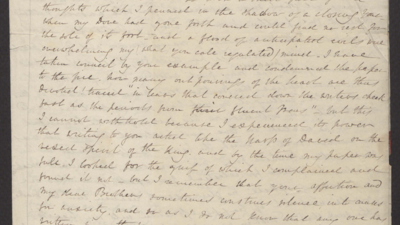 thoughts which I penned in the shadow of a closing
when my Dove had gone forth and could find no rest for
the sole of its foot, and a flood of anticipated evils was
overwhelming my (what you call regulated) mind. I have
taken counsel by your example and condemned the paper
to the fire. How many outpourings of the heart are thus
"traced in tears that coursed down the writers cheek
fast as the periods from fluent" - but this
I cannot withhold because I experienced its power
that writing to you acted like the harp of David on the
vexed spirit of the King and by the time my paper was
full I looked for the grief of which I complained and
found it not - but I remember that your affection and
my dear Brothers sometimes construes silence into cause
for anxiety, and so as I do not know that any one has